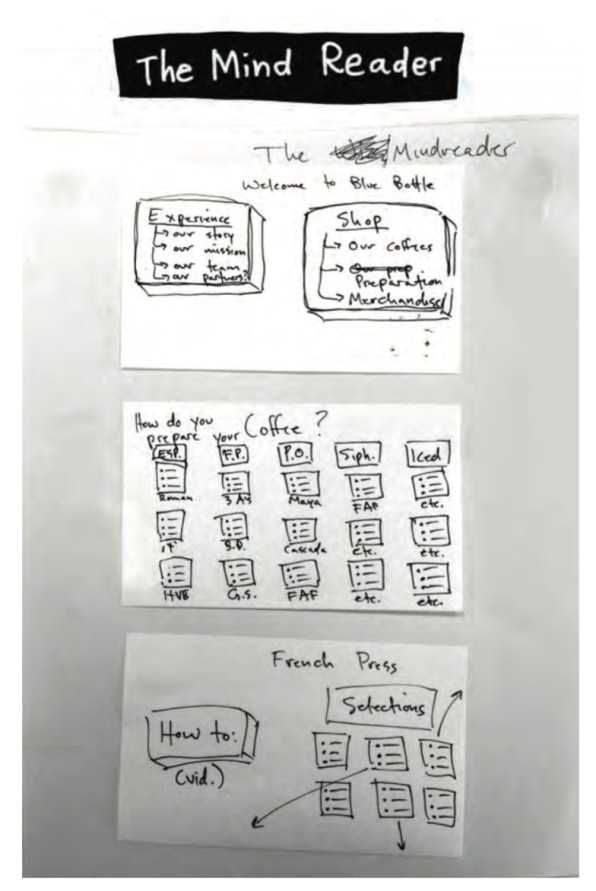 The Mind Reader
The Mindreader
Welcome to Blue Bottle
Experience
our story
our mission
our team
our partners?
Shop
Our coffees
Our prep
Preparation
Merchandise
How do you
prepare your Coffee?
Esp. F.P. P.O. Siph. Iced
Roman 3 AF Maya FAF etc.
17' S.D. Cascada etc. etc.
HVE G.S. FAF etc. etc.
French Press
Selections
How to:
(vid.)